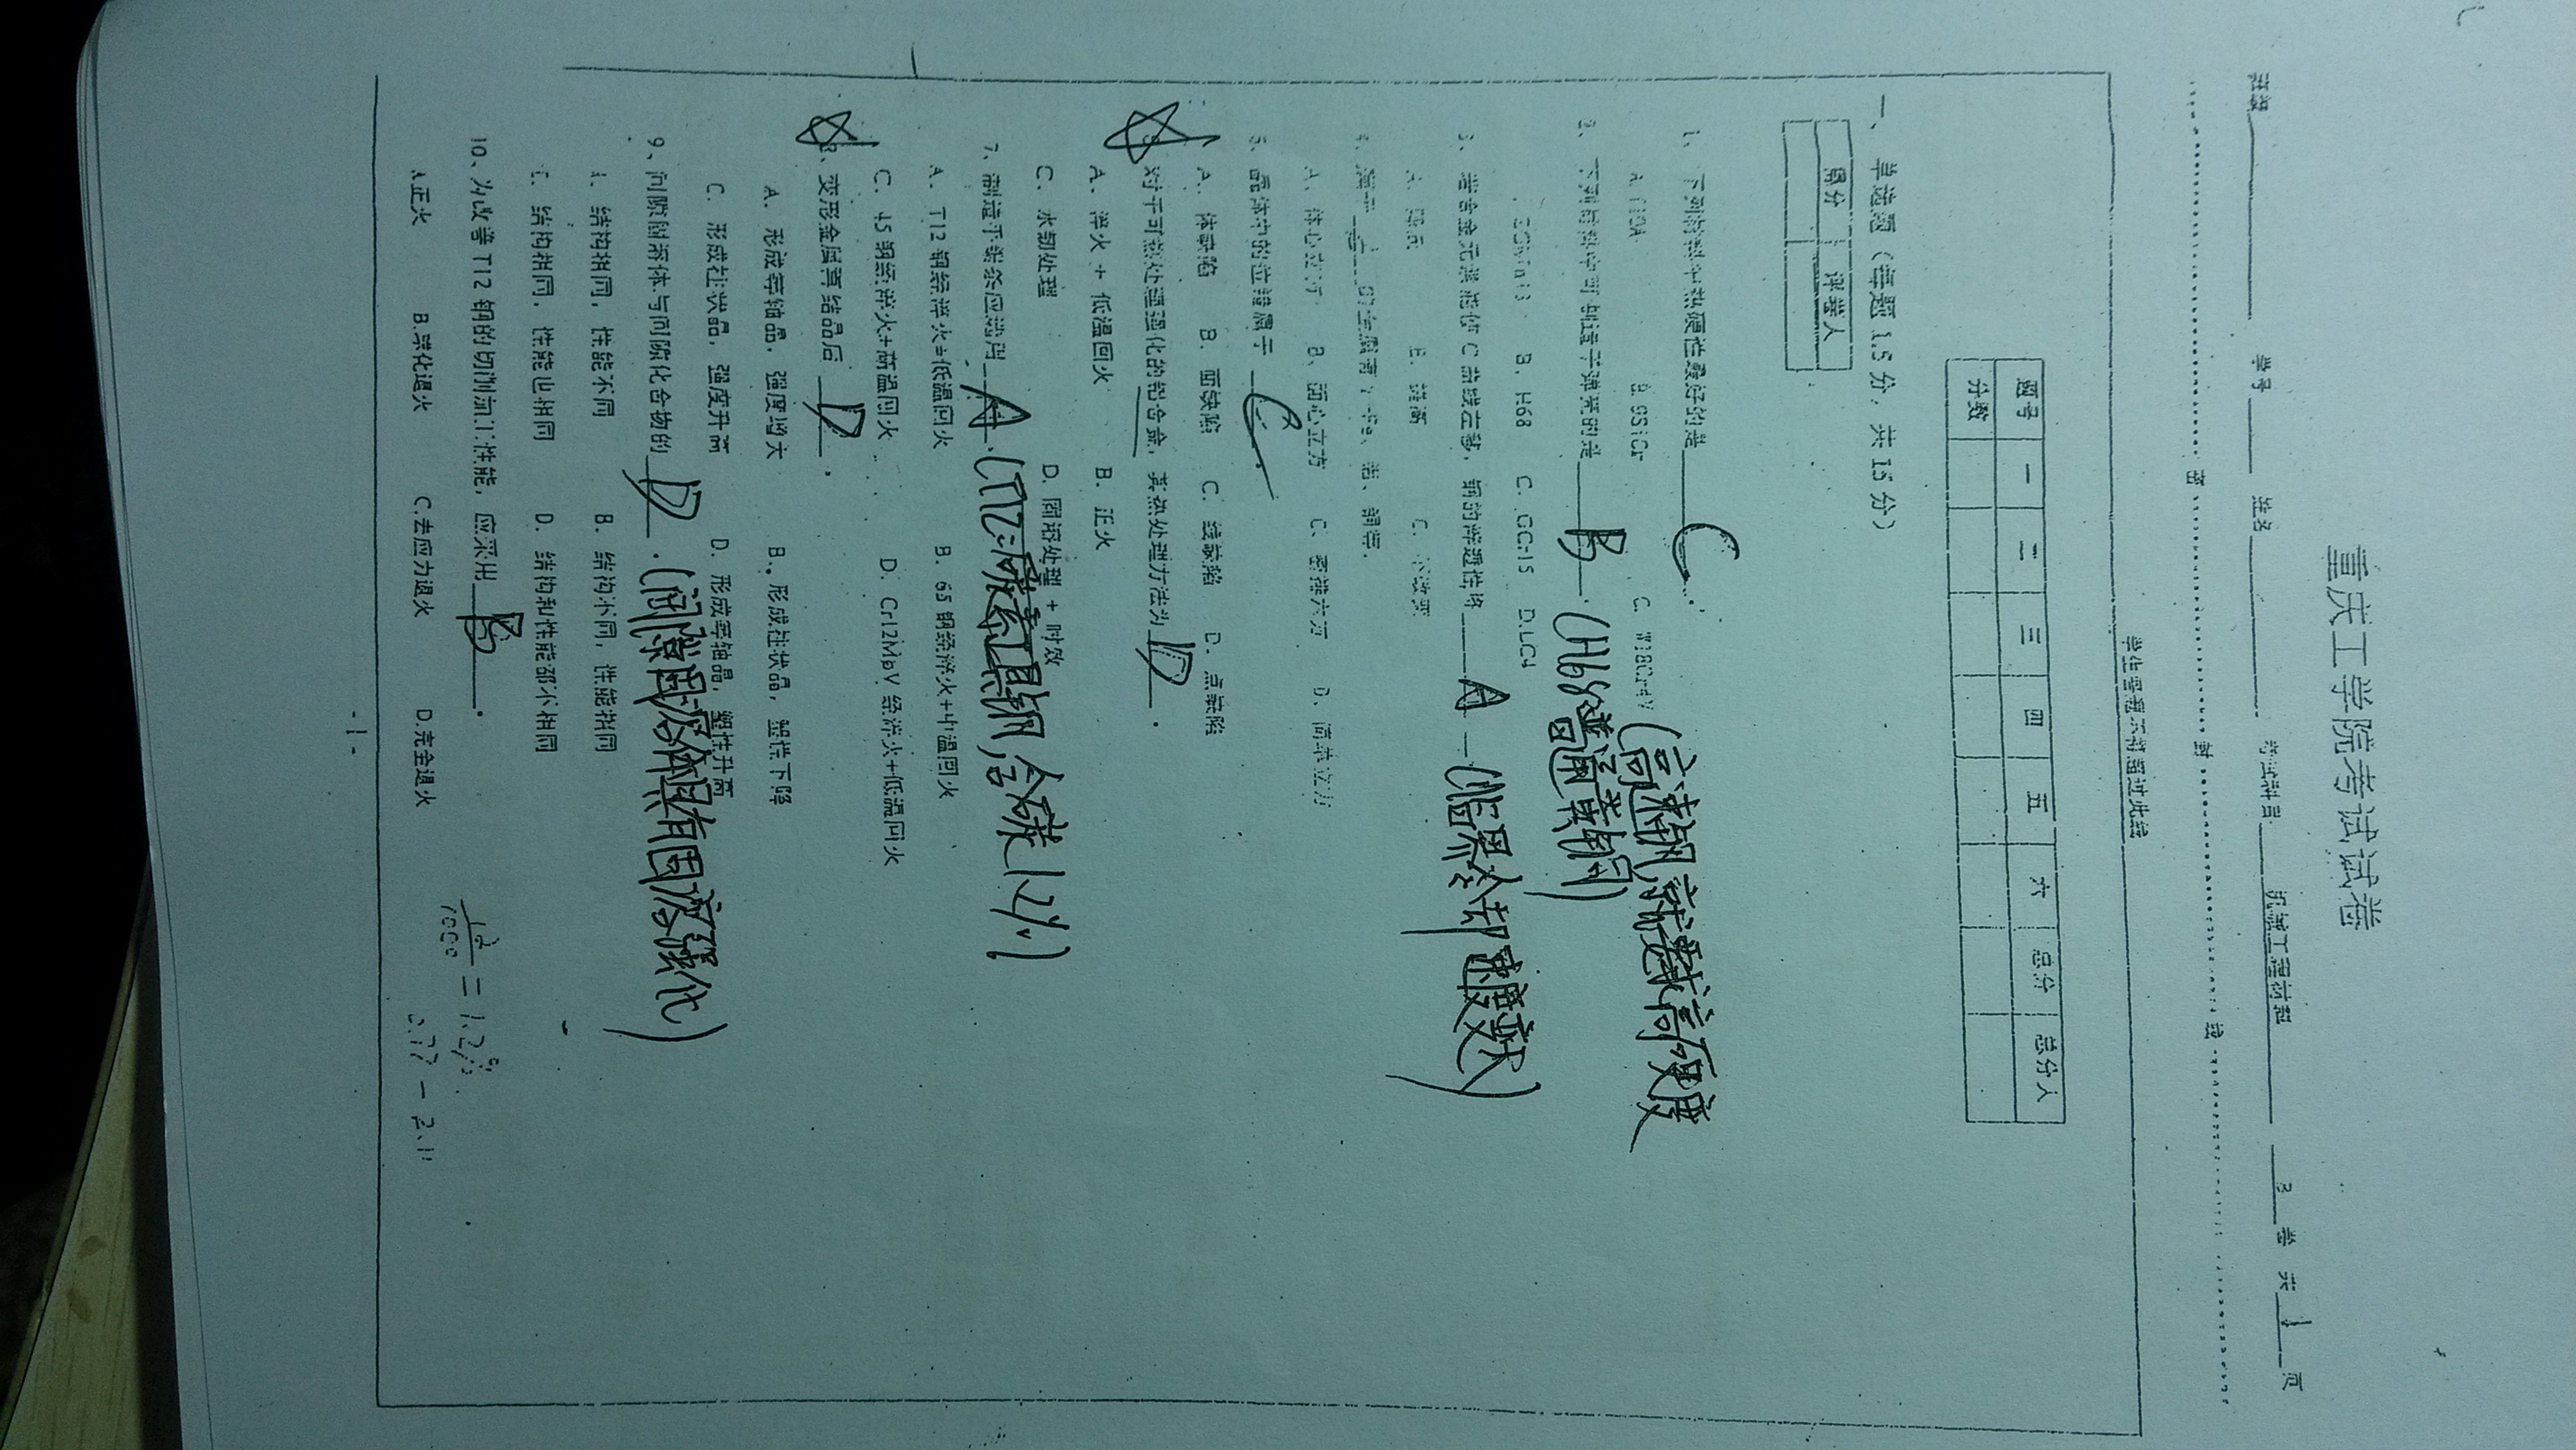 重庆工学院考试试卷
班级 学号 姓名 考试科目 机械工程材料 B 卷 共 1 页
密 封 线
学生答题不得超过此线
题号 一 二 三 四 五 六 总分 总分人
分数
得分 评卷人
一、单选题（每题 1.5 分，共 15 分）
1、下列材料中热硬性最好的是 C
A. T10A B. 9SiCr C. W18Cr4V (高速钢，
2、下列材料中可制造子弹壳的是 B . (H68普通黄铜)
B. H68 C. GCr15 D. LC4
3、若合金元素能使 C 曲线左移，钢的淬透性将 A (临界冷却速度变大)
C. 不改变
A、体心立方 B、面心立方 C、密排六方 D、简单立方
5、晶体中的位错属于 C
A. 体缺陷 B. 面缺陷 C. 线缺陷 D. 点缺陷
对于可热处理强化的铝合金，其热处理方法为 D .
A. 淬火 + 低温回火 B. 正火
C. 水韧处理 D. 固溶处理 + 时效
7、制造手锯条应选用 A . (T12:碳素工具钢,含碳1.2%)
A. T12 钢经淬火+低温回火 B. 65 钢经淬火+中温回火
C. 45 钢经淬火+高温回火 D. Cr12MoV 经淬火+低温回火
8、变形金属再结晶后 D .
A. 形成等轴晶，强度增大 B. 形成柱状晶，塑性下降
C. 形成柱状晶，强度升高 D. 形成等轴晶，塑性升高
9、间隙固溶体与间隙化合物的 D . (间隙固溶体具有固溶强化)
A. 结构相同，性能不同 B. 结构不同，性能相同
C. 结构相同，性能也相同 D. 结构和性能都不相同
10、为改善 T12 钢的切削加工性能，应采用 B .
A.正火 B.球化退火 C.去应力退火 D.完全退火
12/1000 = 1.2%
0.77 - 2.11
- 1 -